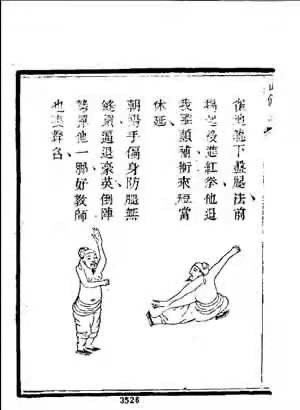 雀地龍下盤腿法前
揭起後進紅拳他退
我雖顛補衝來短當
休延
朝陽手偏身防腿無
縫鎖逼退豪英倒陣
勢彈他一脚好教師
也喪聲名
3526